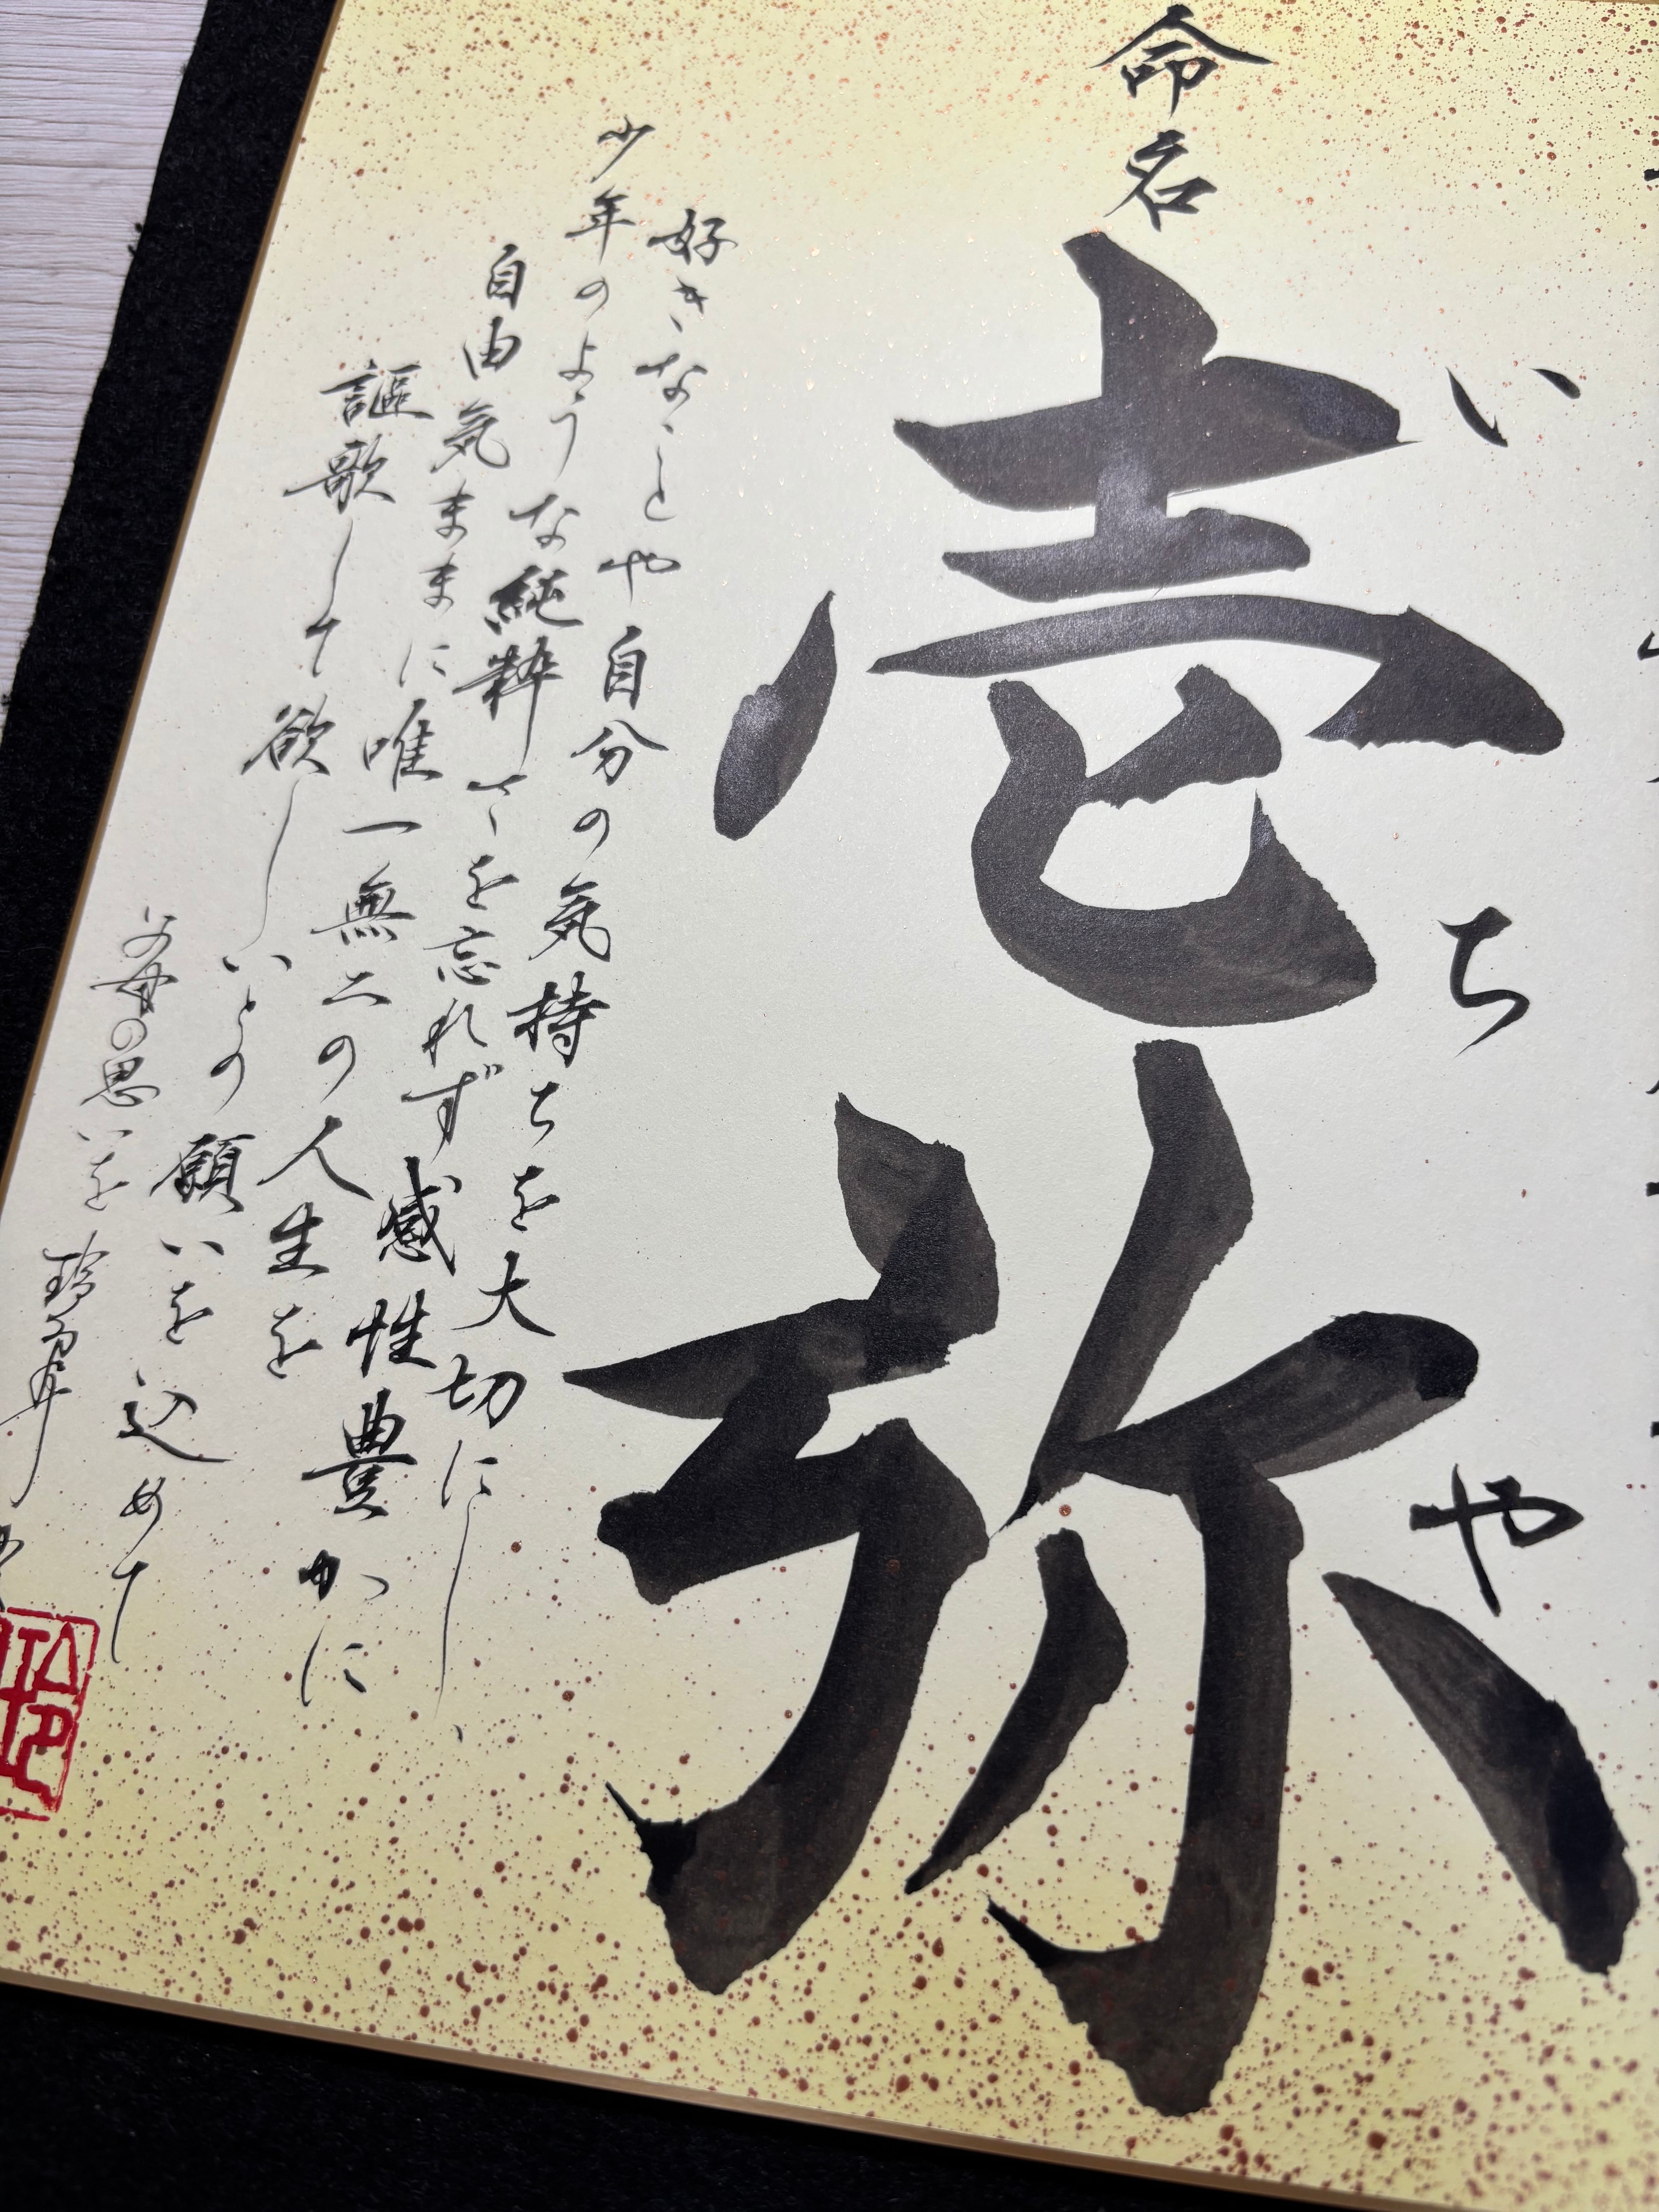 命名
壱弥
いちや
好きなことや自分の気持ちを大切にし、
少年のような純粋さを忘れず感性豊かに
自由気ままに唯一無二の人生を
謳歌して欲しいとの願いを込めて
父母の思いを